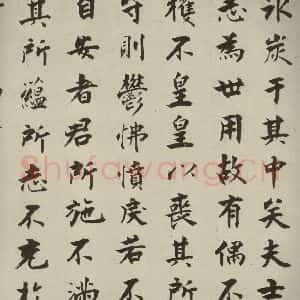 氷炭于其中矣夫士
志為世用故有偶不
獲不皇皇以喪其所
守則鬱怫憤戾若不
自安者君所施不滿
其所蘊所志不充於
Shufawang.cn